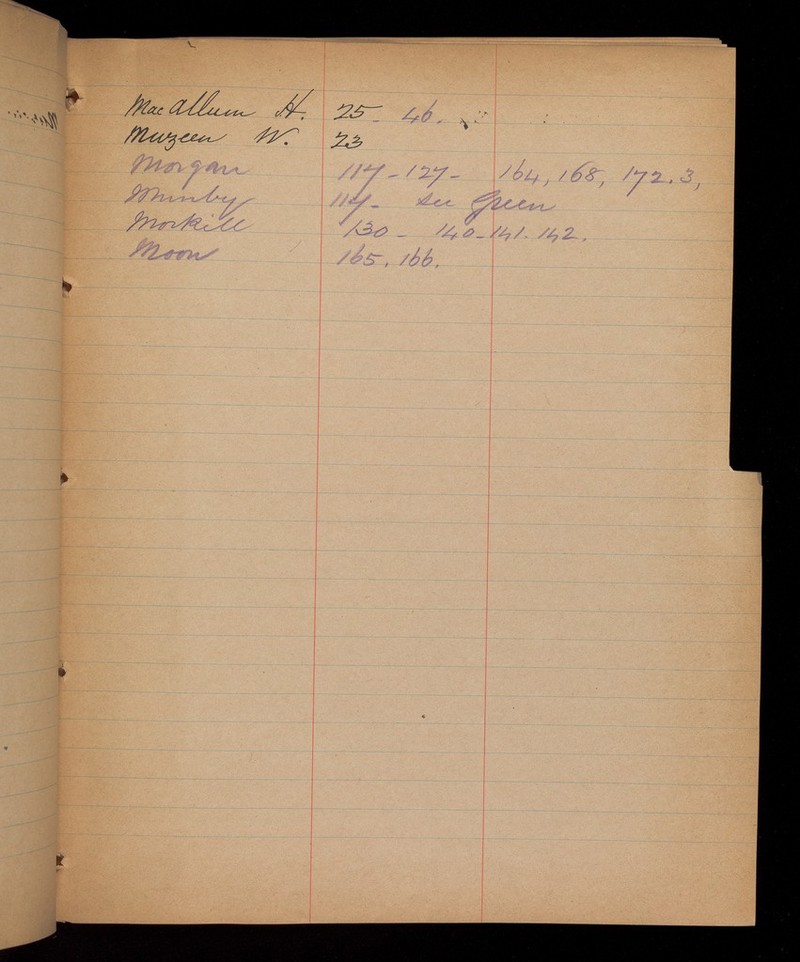 MacAllum H. 25 - 46.
Muzeen W. 23
Morgan 117 - 127 - 164, 168, 172.3,
Mumby 117 - see Green
Morkill 130 - 140 - 141 - 142.
Moon 165. 166.